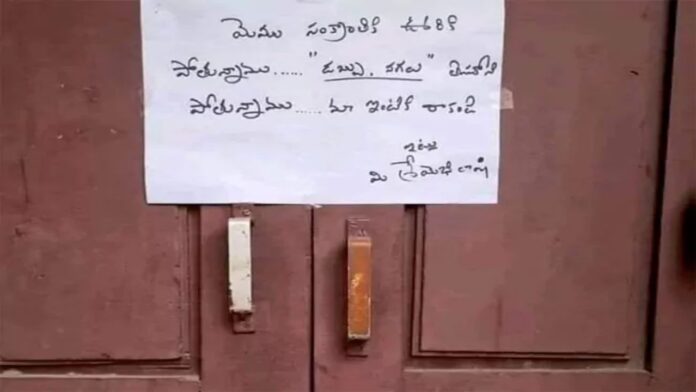 మేము సంక్రాంతికి ఊరికి
పోతున్నాము...... "డబ్బు, నగలు" తీసుకొని
పోతున్నాము...... మా ఇంటికి రాకండి
ఇట్లు
మీ శ్రేయోభిలాషి